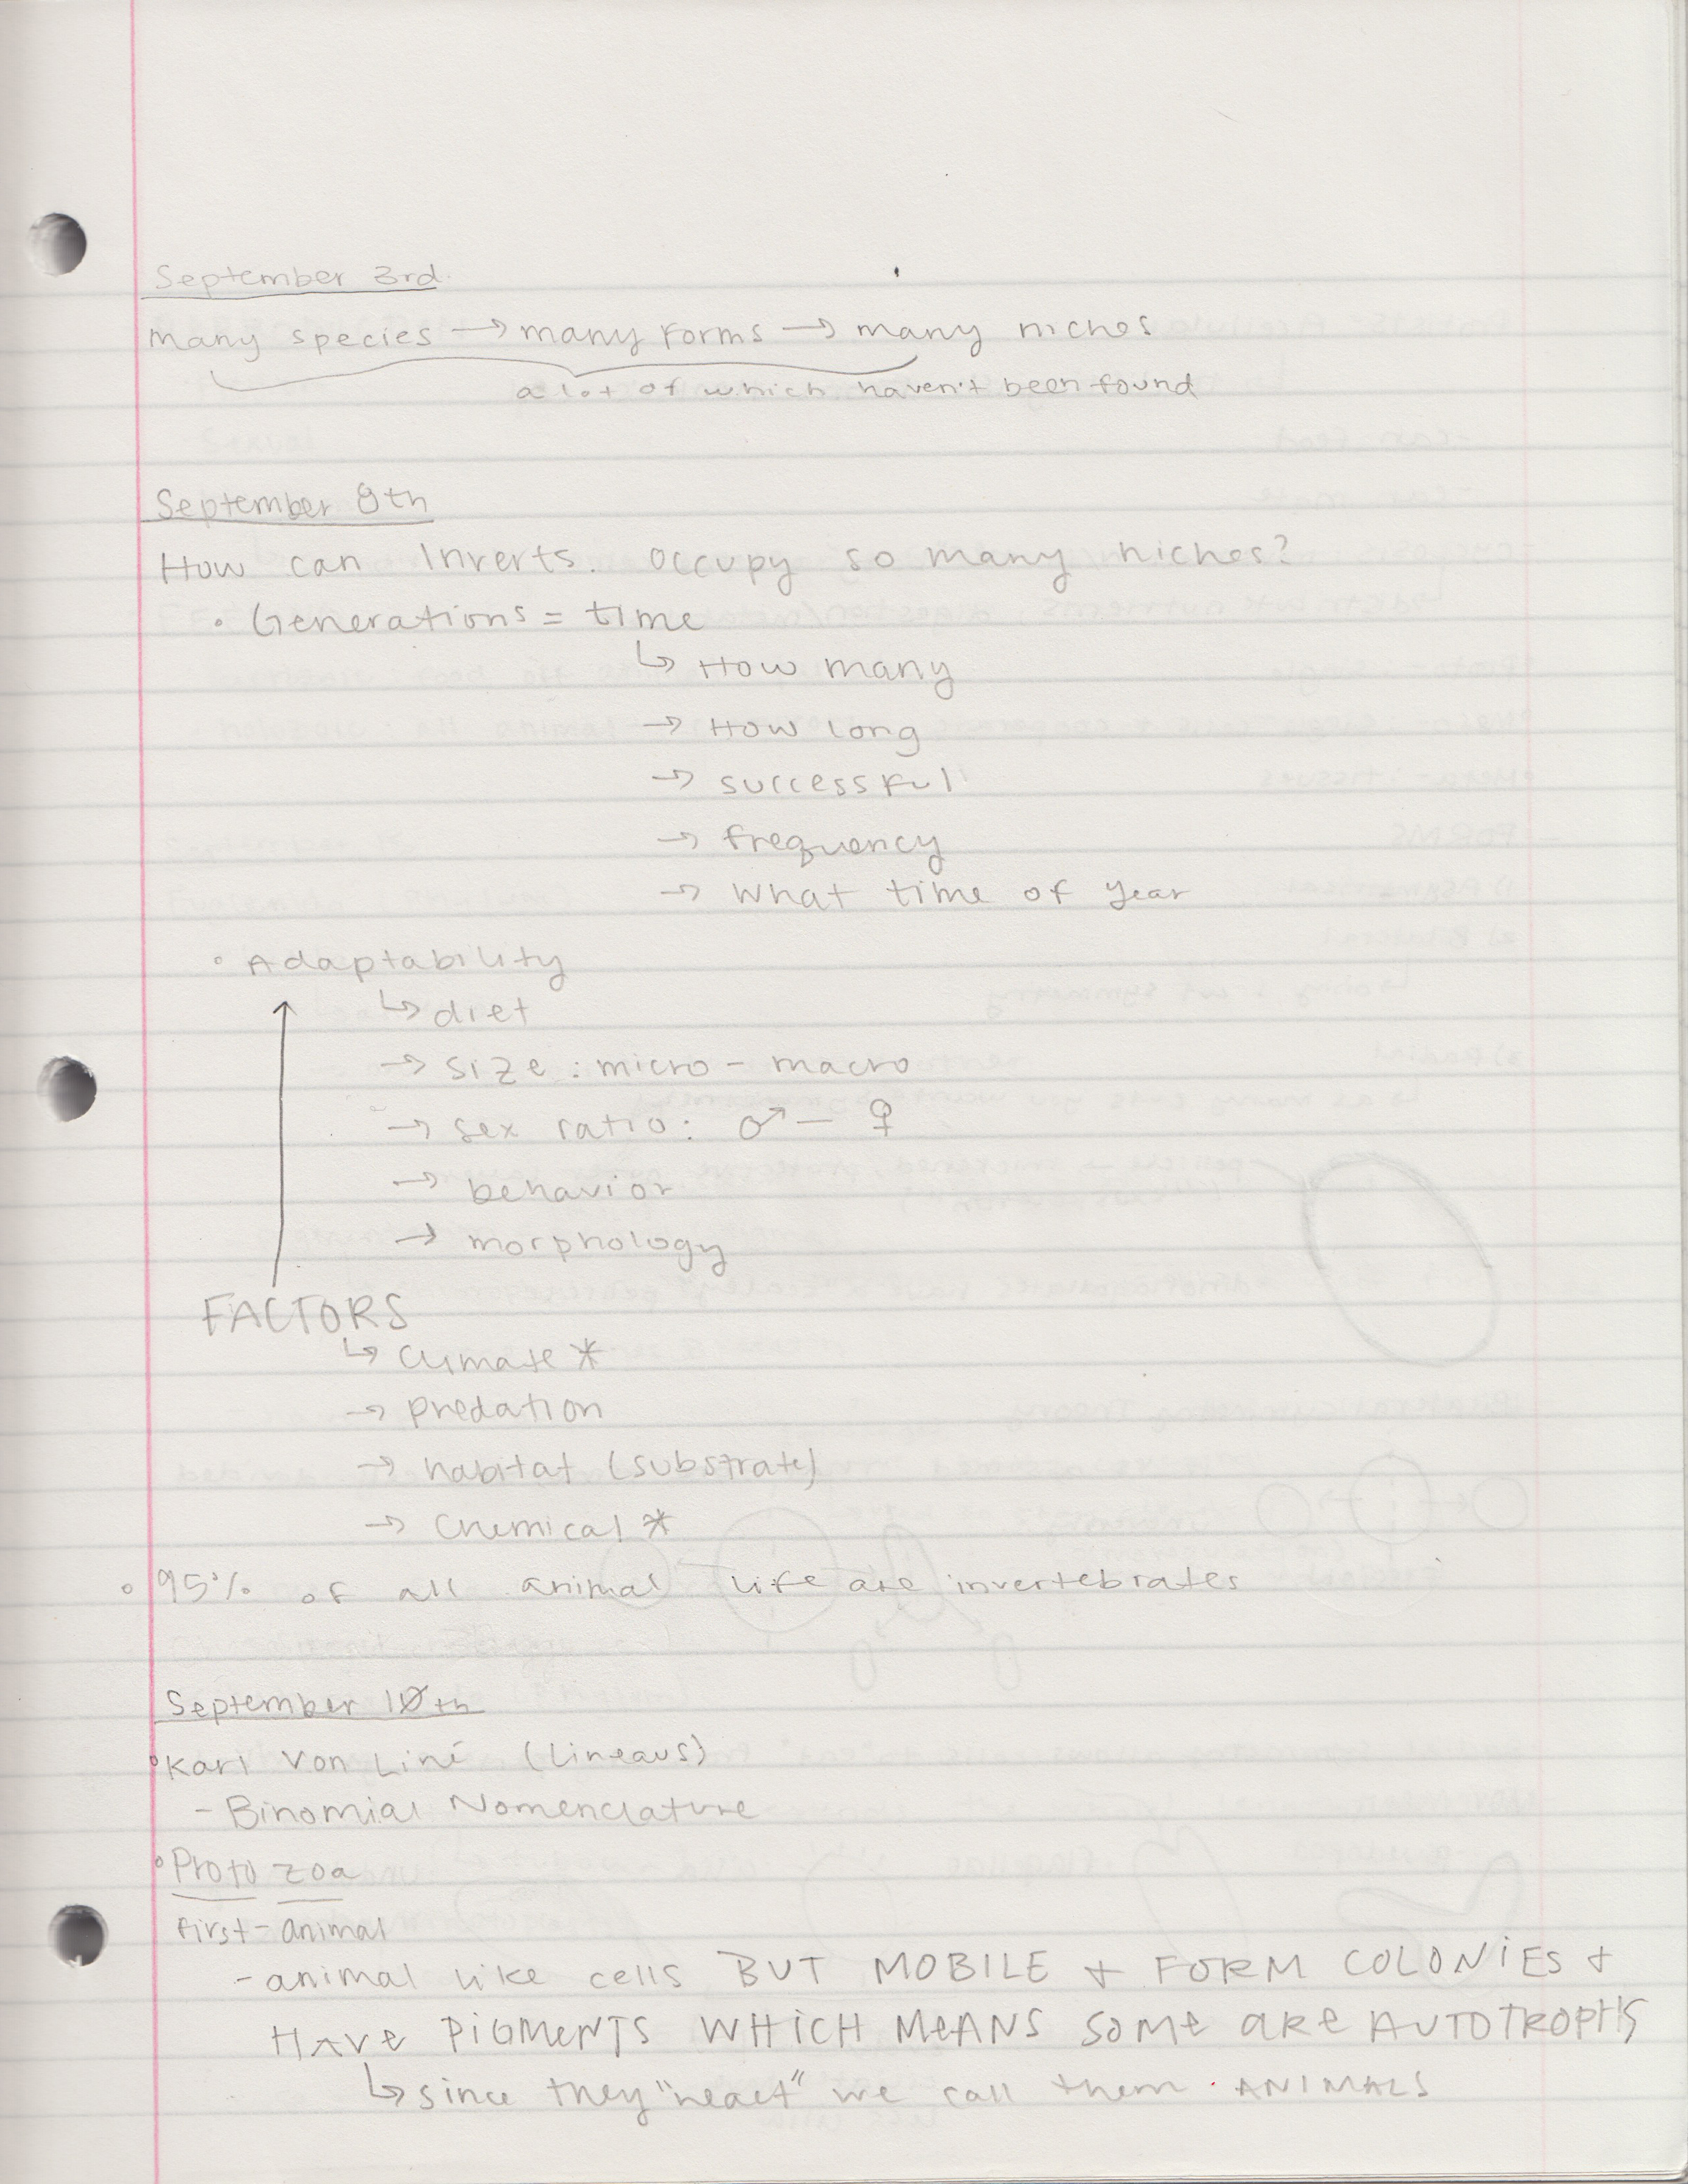 September 3rd.
many species → many forms → many niches
a lot of which haven't been found
September 8th
How can Inverts. occupy so many niches?
• Generations = time
↳ How many
→ How long
→ successful
→ frequency
→ what time of year
• Adaptability
↳ diet
→ size : micro - macro
→ sex ratio: ♂ - ♀
→ behavior
→ morphology
FACTORS
↳ climate *
→ predation
→ habitat (substrate)
→ chemical *
• 95% of all animal life are invertebrates
September 10th
• Karl Von Liné (Lineaus)
- Binomial Nomenclature
• Proto zoa
first - animal
- animal like cells BUT MOBILE + FORM COLONIES +
HAVE PIGMENTS WHICH MEANS SOME ARE AUTOTROPHS
↳ since they "react" we call them ANIMALS